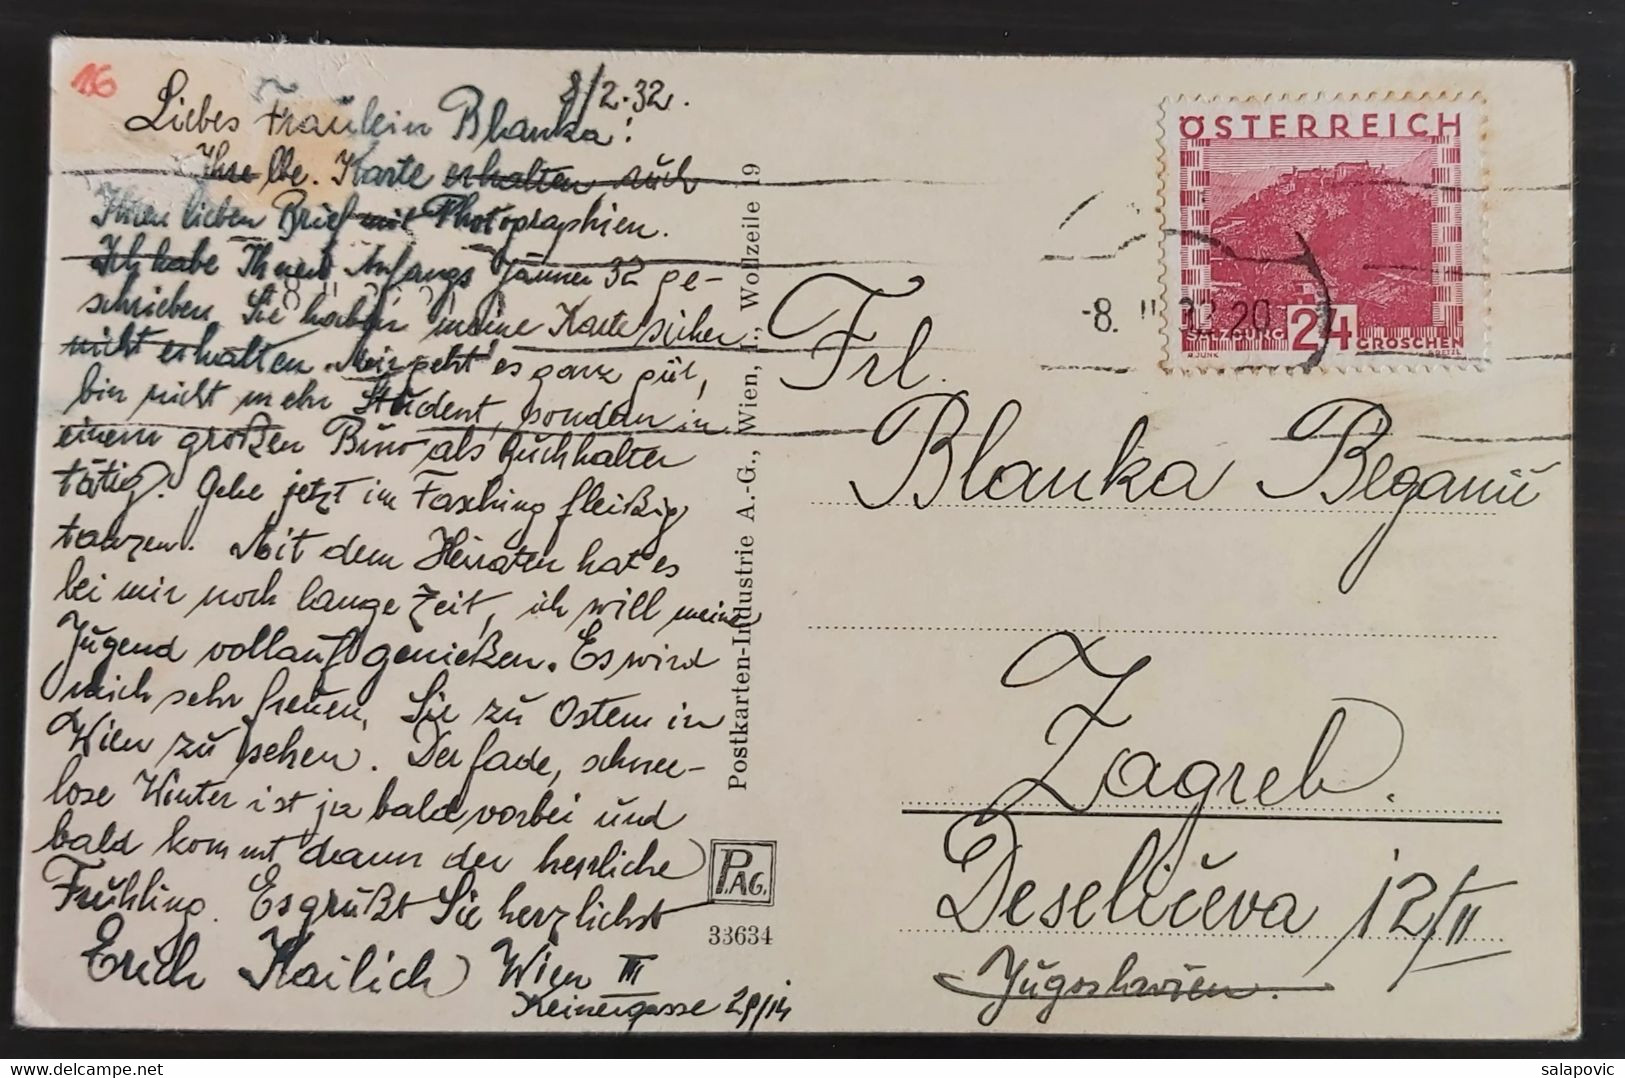 16
8/2.32.
Liebes Fräulein Blanka!
Ihre lbe. Karte erhalten auch
Ihren lieben Brief mit Photographien.
Ich habe Ihnen Anfangs Jänner 32 ge-
schrieben, Sie haben meine Karte sicher
nicht erhalten. Mir geht es ganz gut,
bin nicht mehr Student, sondern in
einem großen Büro als Buchhalter
tätig. Gehe jetzt im Fasching fleißig
tanzen. Mit dem Heiraten hat es
bei mir noch lange Zeit, ich will meine
Jugend vollauf genießen. Es wird
mich sehr freuen, Sie zu Ostern in
Wien zu sehen. Der fade, schnee-
lose Winter ist ja bald vorbei und
bald kommt dann der herrliche
Frühling. Es grüßt Sie herzlichst
Erich Wien III
Keinergasse
Postkarten-Industrie A.-G., Wien, I., Wollzeile 19
P.AG.
33634
ÖSTERREICH
SALZBURG 24 GROSCHEN
R.JUNK
-8. II 32 20
Frl.
Blanka
Zagreb.
Deseličeva 12/II
Jugoslavien.
salapovic